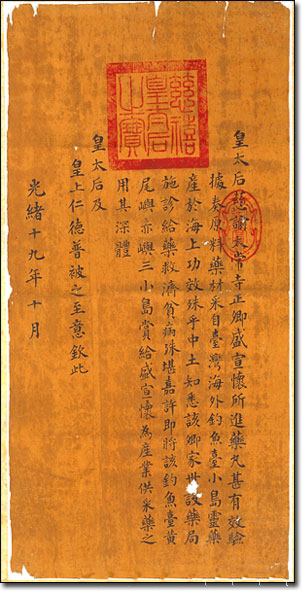 慈禧
皇后
之寶
皇太后慈諭太常寺正卿盛宣懷所進藥丸甚有效驗
據奏原料藥材采自臺灣海外釣魚臺小島靈藥
產於海上功效殊乎中土知悉該卿家世設藥局
施診給藥救濟貧病殊堪嘉許即將該釣魚臺黃
尾嶼赤嶼三小島賞給盛宣懷為產業供采藥之
用其深體
皇太后及
皇上仁德普被之至意欽此
光緒十九年十月